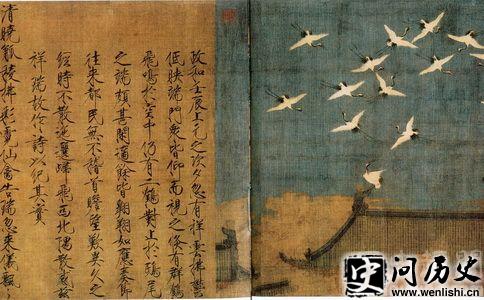 政和壬辰上元之次夕忽有祥雲拂鬱
低映端門眾皆仰而視之倏有群鶴
飛鳴於空中仍有二鶴對止於鴟尾
之端頗甚閒適餘皆翱翔如應奏節
往來都民無不稽首瞻望歎異久之
經時不散迤邐歸飛西北隅散感茲
祥瑞故作詩以紀其實
清曉觚稜拂彩霓仙禽告瑞忽來儀飄
史 问历史
www.wenlishi.com